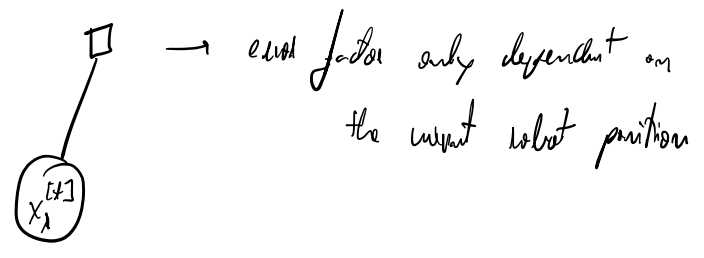 → error factor only dependent on
the current robot position
x_λ^[t]